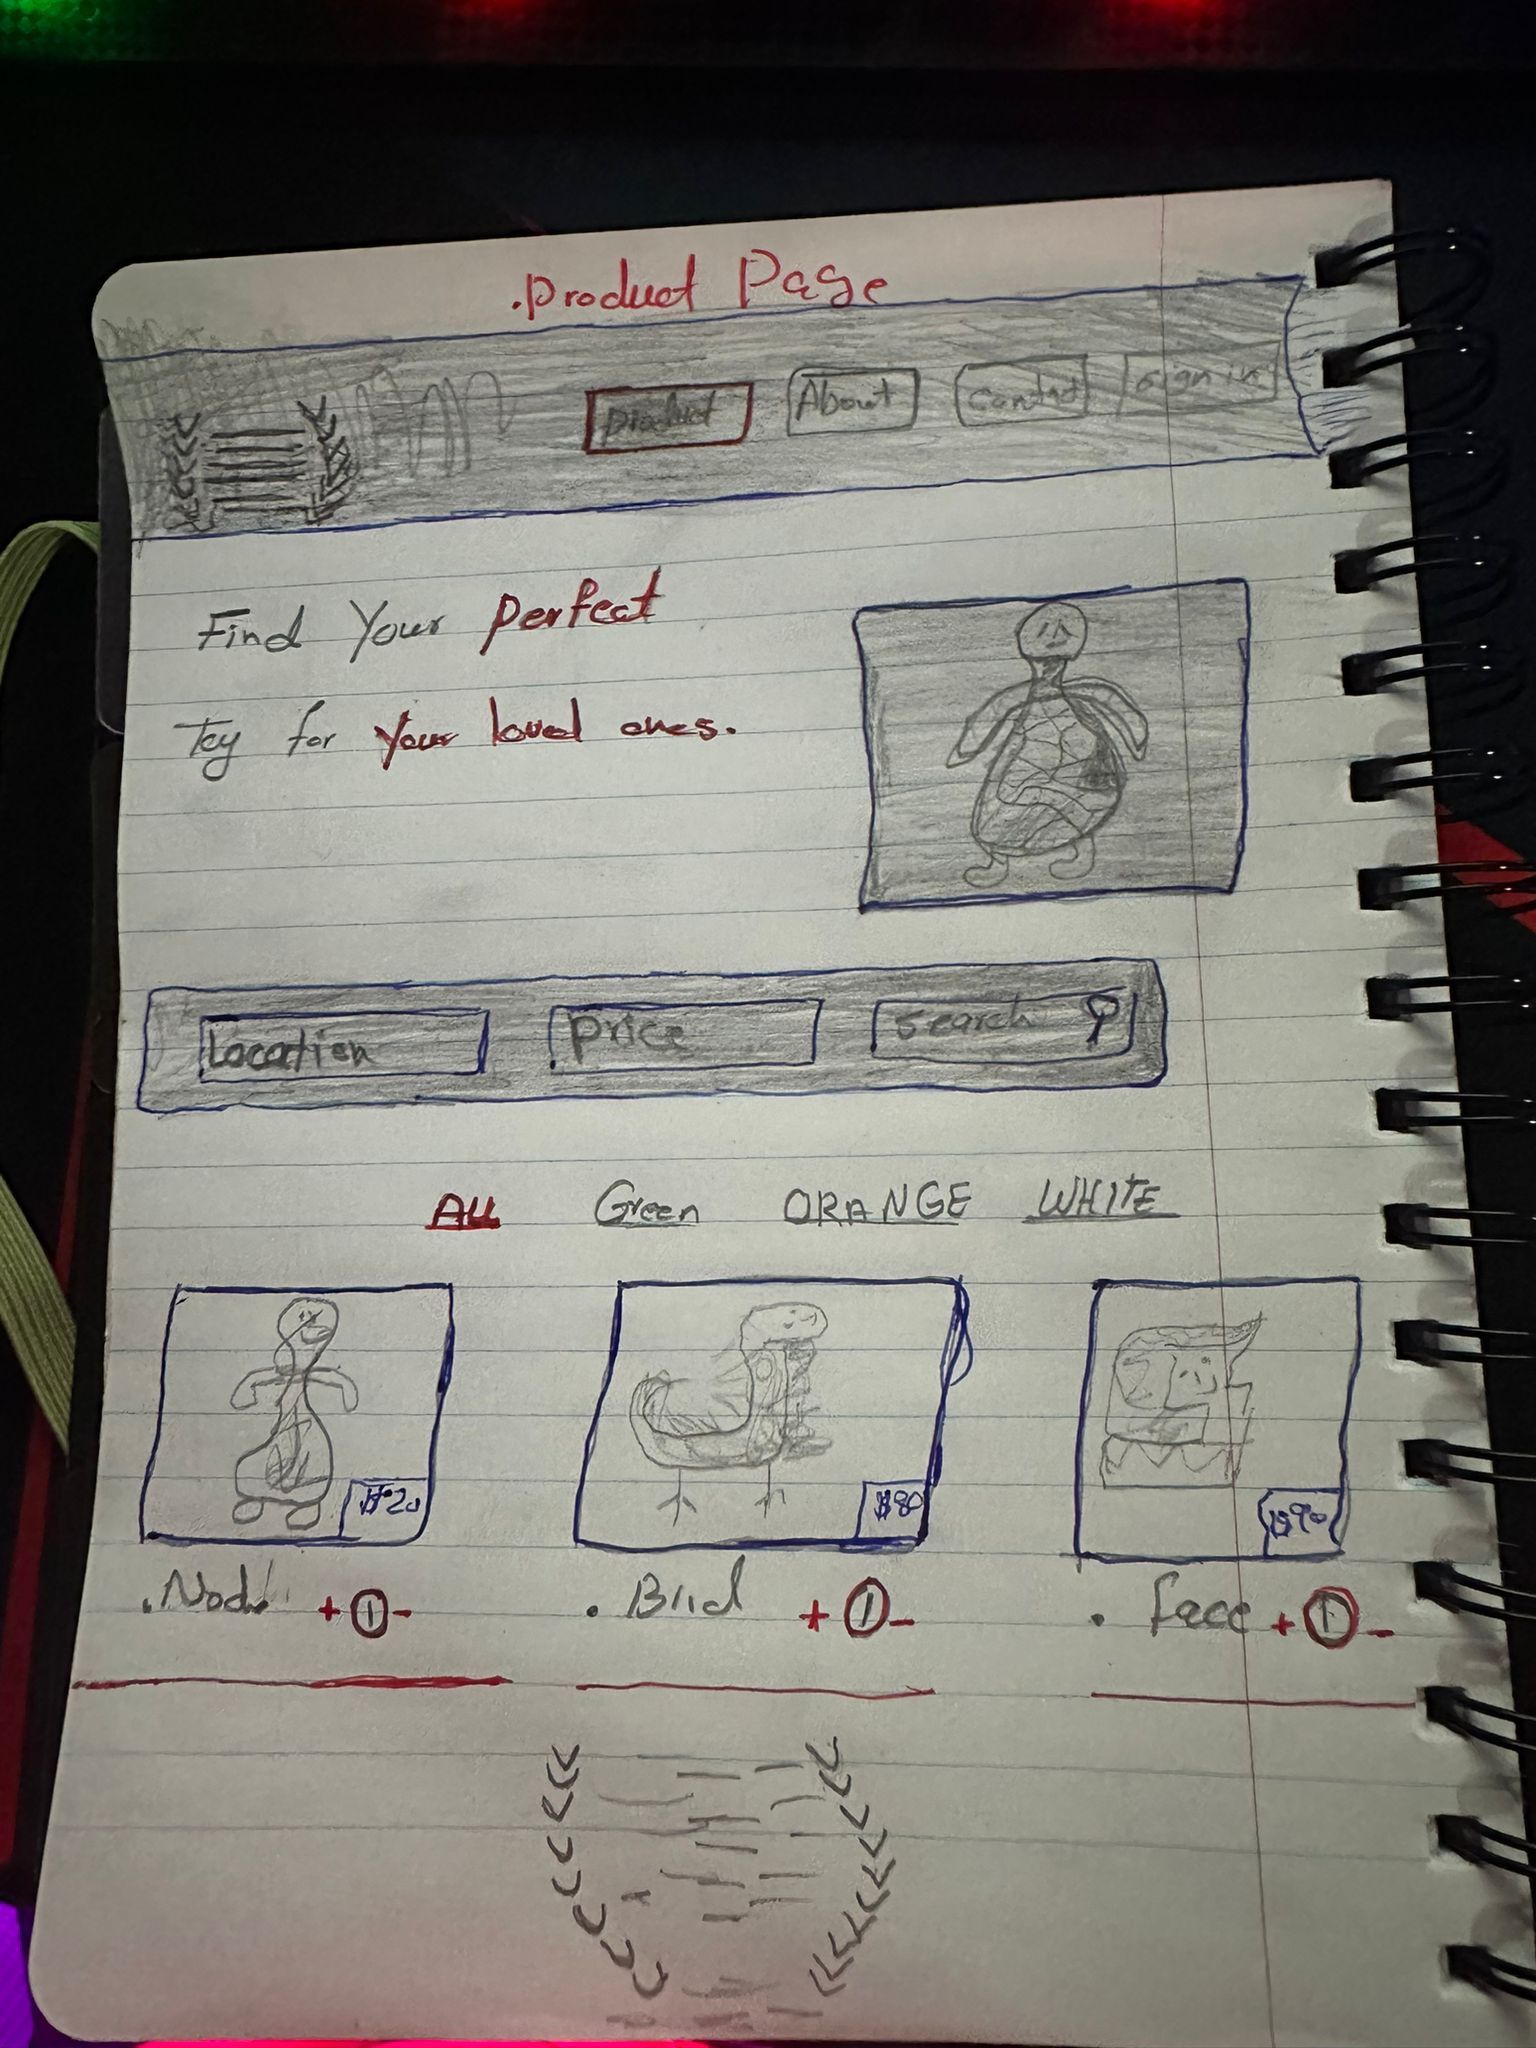 .Product Page
Product About Contact Sign in
Find Your Perfect
Toy for Your loved ones.
Location Price Search
ALL Green ORANGE WHITE
$20 $80 $90
+ 1 - . + 1 - . face + 1 -